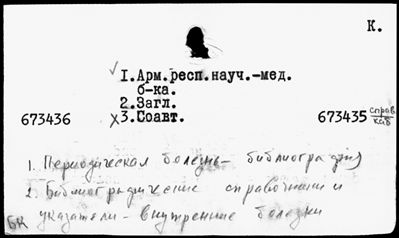 К.
I.Арм.респ.науч.-мед.
б-ка.
2.Загл.
673436 X3.Соавт. 673435 справ. каб
1. Периодическая болезнь – библиография
2. Библиографические справочники и
БК указатели – внутренние болезни